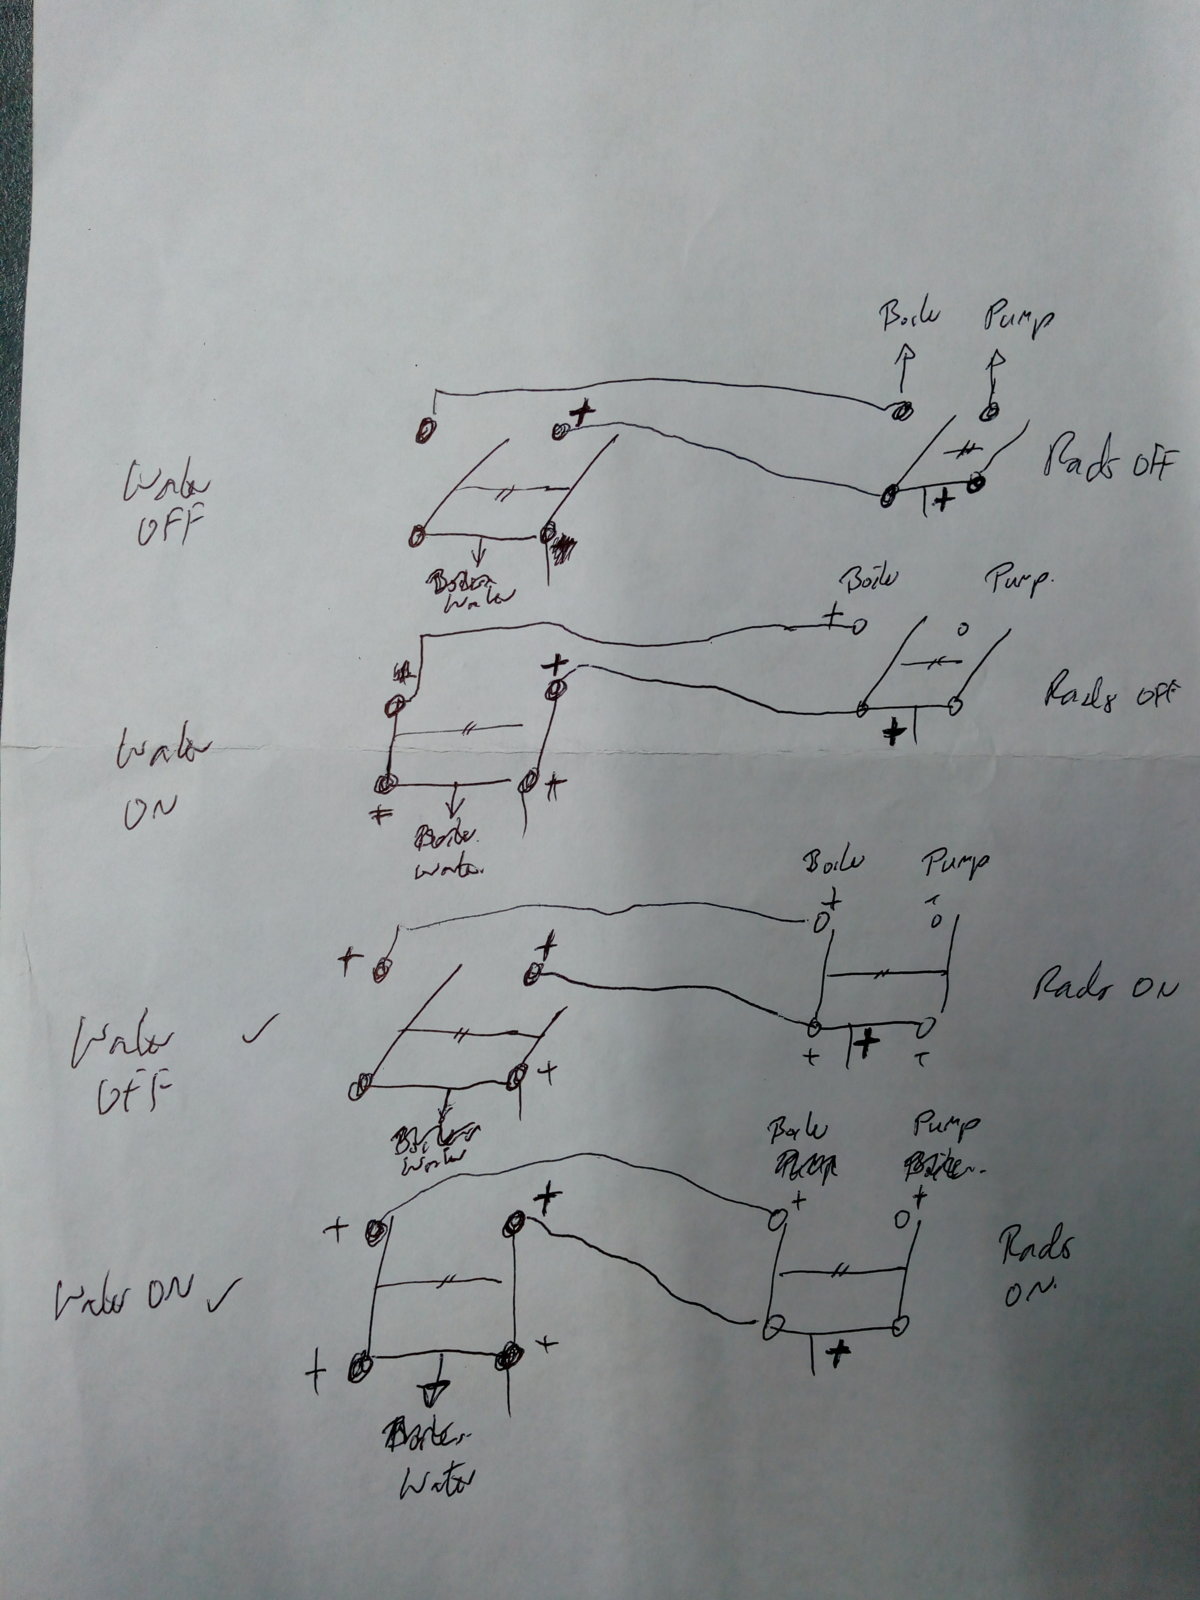 Boiler Pump
+
Water
OFF
Rads OFF
+
Water
Boiler Pump.
+
+
Rads OFF
Water
ON
+
+
Boiler
Water.
Boiler Pump
+
+
+
Rads ON
Water ✓
OFF
+
+
+
Water
Boiler Pump
+
+
+
+
Rads
ON.
Water ON ✓
+
+
+
Water